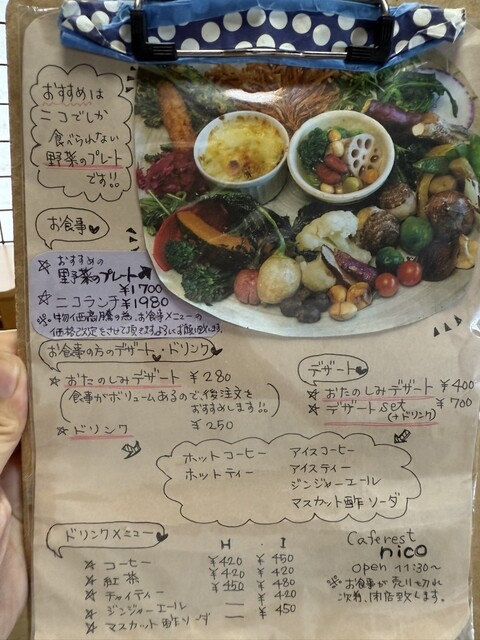 おすすめは
ニコでしか
食べられない
野菜のプレート
です!!
お食事♥
☆ おすすめの
野菜のプレート
¥1700
☆ ニコランチ ¥1980
※物価高騰の為、お食事メニューの
価格改定をさせて頂きますよろしくお願い致します。
お食事の方のデザート・ドリンク♥
☆ おたのしみデザート ¥280
(食事がボリュームあるので、後注文を
おすすめします!!)
☆ ドリンク ¥250
デザート♥
☆ おたのしみデザート ¥400
☆ デザートset ¥700
(+ドリンク)
ホットコーヒー アイスコーヒー
ホットティー アイスティー
ジンジャーエール
マスカット酢ソーダ
ドリンクメニュー H ・ I
☆ コーヒー ¥420 ¥450
☆ 紅茶 ¥420 ¥420
☆ チャイティー ¥450 ¥480
☆ ジンジャーエール — ¥420
☆ マスカット酢ソーダ — ¥450
Caferest
nico
open 11:30~
※お食事が売り切れ
次第、閉店致します。